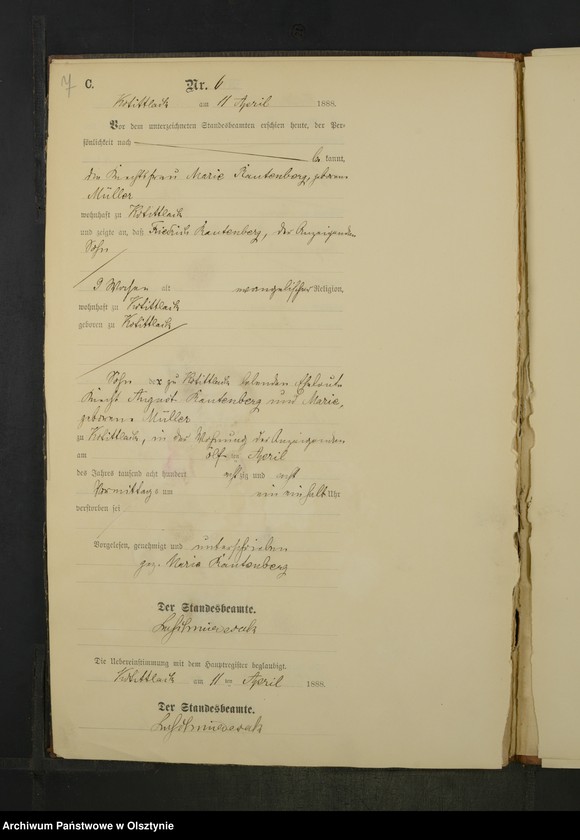 7 C. Nr. 6
am 11 April 1888.
Vor dem unterzeichneten Standesbeamten erschien heute, der Per-
sönlichkeit nach
be kannt,
die Knechtsfrau Marie Kautenberg, geborene
Müller
wohnhaft zu
und zeigte an, daß Friedrich Kautenberg, der Anzeigenden
Sohn
3 Wochen alt evangelischer Religion,
wohnhaft zu
geboren zu
Sohn der zu lebenden Eheleute
Knecht August Kautenberg und Marie,
geborene Müller
zu , in der Wohnung der Anzeigenden
am elften April
des Jahres tausend acht hundert achtzig und acht
Vormittags um ein ein halb Uhr
verstorben sei
Vorgelesen, genehmigt und unterschrieben
gez. Marie Kautenberg
Der Standesbeamte.
Die Uebereinstimmung mit dem Hauptregister beglaubigt.
am 11 ten April 1888.
Der Standesbeamte.
Archiwum Państwowe w Olsztynie